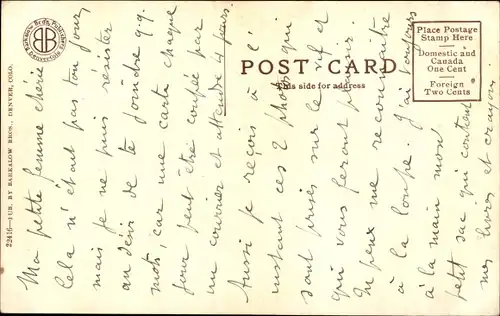 Ma petite femme chérie
Cela n'étant pas ton jour,
mais je ne puis résister
au désir de te joindre q.q.
mots, car une carte chaque
jour peut être coupé par
un courrier et attendre 4 jours.
Aussi je reçois à l'
instant ces 2 photos qui
sont prises sur le vif et
qui vous feront plaisir.
Tu peux me reconnaître
à la loupe. J'ai toujours
à la main mon
petit sac qui contient
mes livres et crayons
POST CARD
This side for address
Place Postage
Stamp Here
Domestic and
Canada
One Cent
Foreign
Two Cents
22416—PUB. BY BARKALOW BROS., DENVER, COLO.
BB